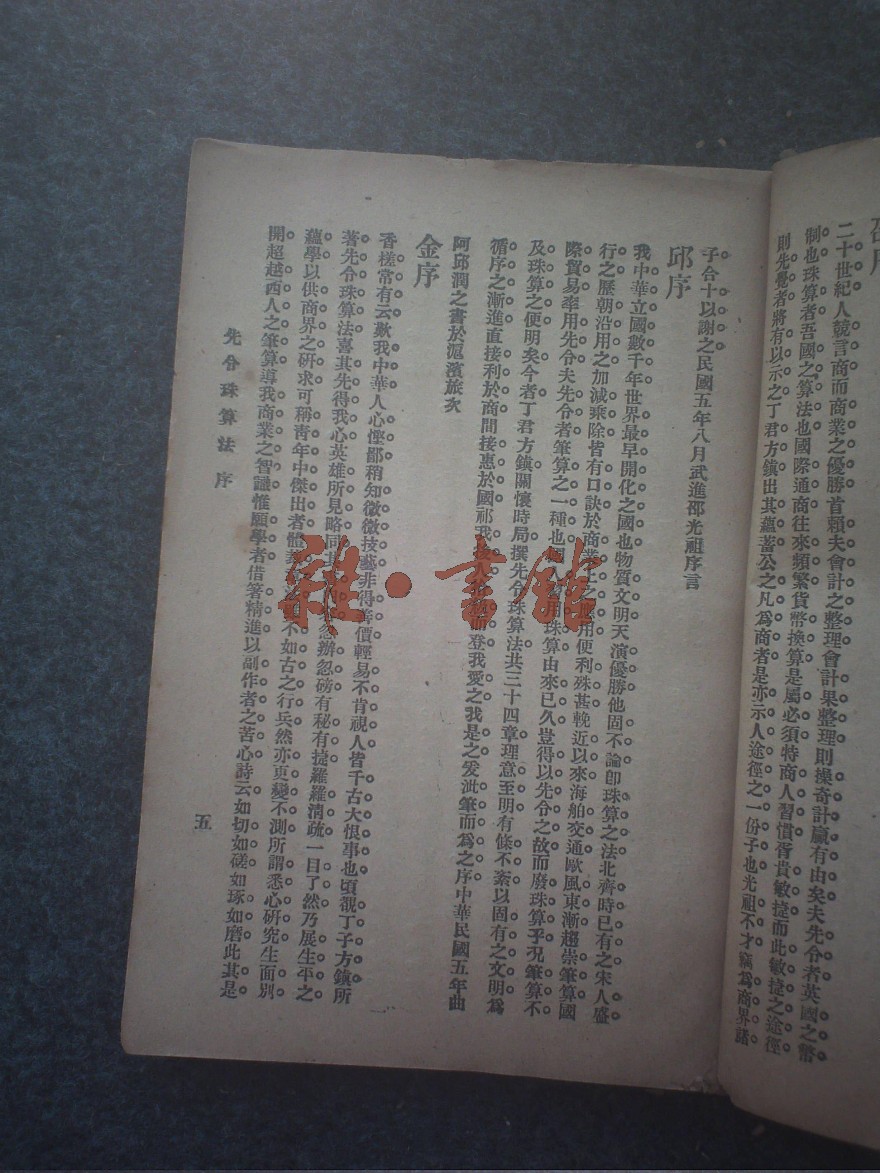 邵序
二十世紀人競言商而商業之優勝首賴夫會計之整理會計果整理則操奇計贏有由矣夫先令者英國之幣
制也珠算者吾國之算法也國際通商往來頻繁貨幣換算是屬必須特商人習慣胥貴敏捷而此敏捷之途徑
則先覺者將有以示之丁君方鎮出其蘊蓄公之凡爲商者是亦示人途徑之一份子也光祖不才竊爲商界諸
子合十以謝之民國五年八月武進邵光祖序言
邱序
我中華立國數千年世界最早開化之國也物質文明天演優勝他固不論卽珠算之法北齊時已有之宋人盛
行之歷朝沿用之加減乘除皆有口訣於商業上之應用便利殊甚輓近以來海舶交通歐風東漸趨崇筆算國
際貿易率用先令夫先令者筆算之一種也國用珠算由來已久豈得以先令之故而廢珠算乎况筆算不
及珠算之便明矣今者丁君方鎮關懷時局撰先令珠算法共三十四章理意至明有條不紊以固有之文明爲
循序之漸進直接利於商間接惠於國祁我人而登我愛之我是之爰泚筆而爲之序中華民國五年曲
阿邱潤之書於滬濱旅次
金序
香槎常有云歎我中華人心慳鄙稍知微微技藝非得善價輕易不肯視人皆千古大恨事也頃覩丁子方鎮所
著先令珠算法喜其先得我心英雄所見略同忽辦忽磅有秘有捷羅羅清疏一目了然乃展生平之
蘊學以供商界之硏求可稱靑年中傑出者體不如古之行兵然亦更變不測所謂悉心硏究生面別
開超越西人之筆算導我商業之智識惟願學者借箸精進以副作者之苦心詩云如切如磋如琢如磨此其是
先令珠算法 序
五
雜·書館